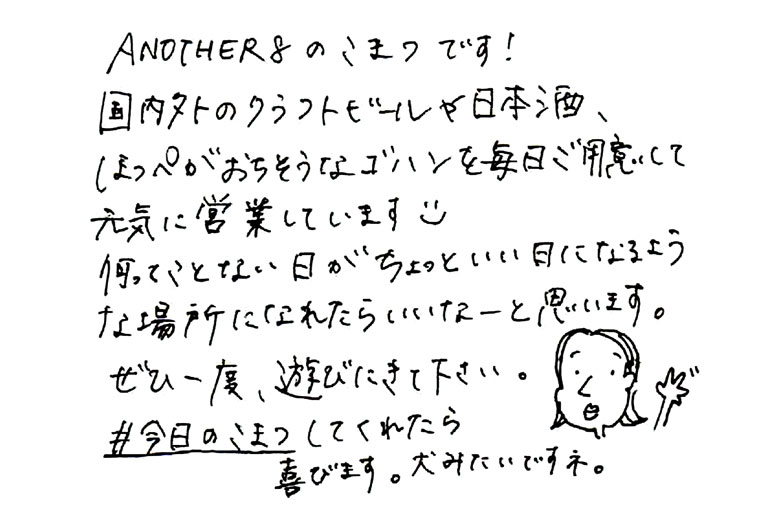 ANOTHER8のこまつです！
国内外のクラフトビールや日本酒、
ほっぺがおちそうなゴハンを毎日ご用意して
元気に営業しています
何ってことない日がちょっといい日になるよう
な場所になれたらいいなーと思います。
ぜひ一度、遊びにきて下さい。
#今日のこまつしてくれたら
喜びます。犬みたいですネ。